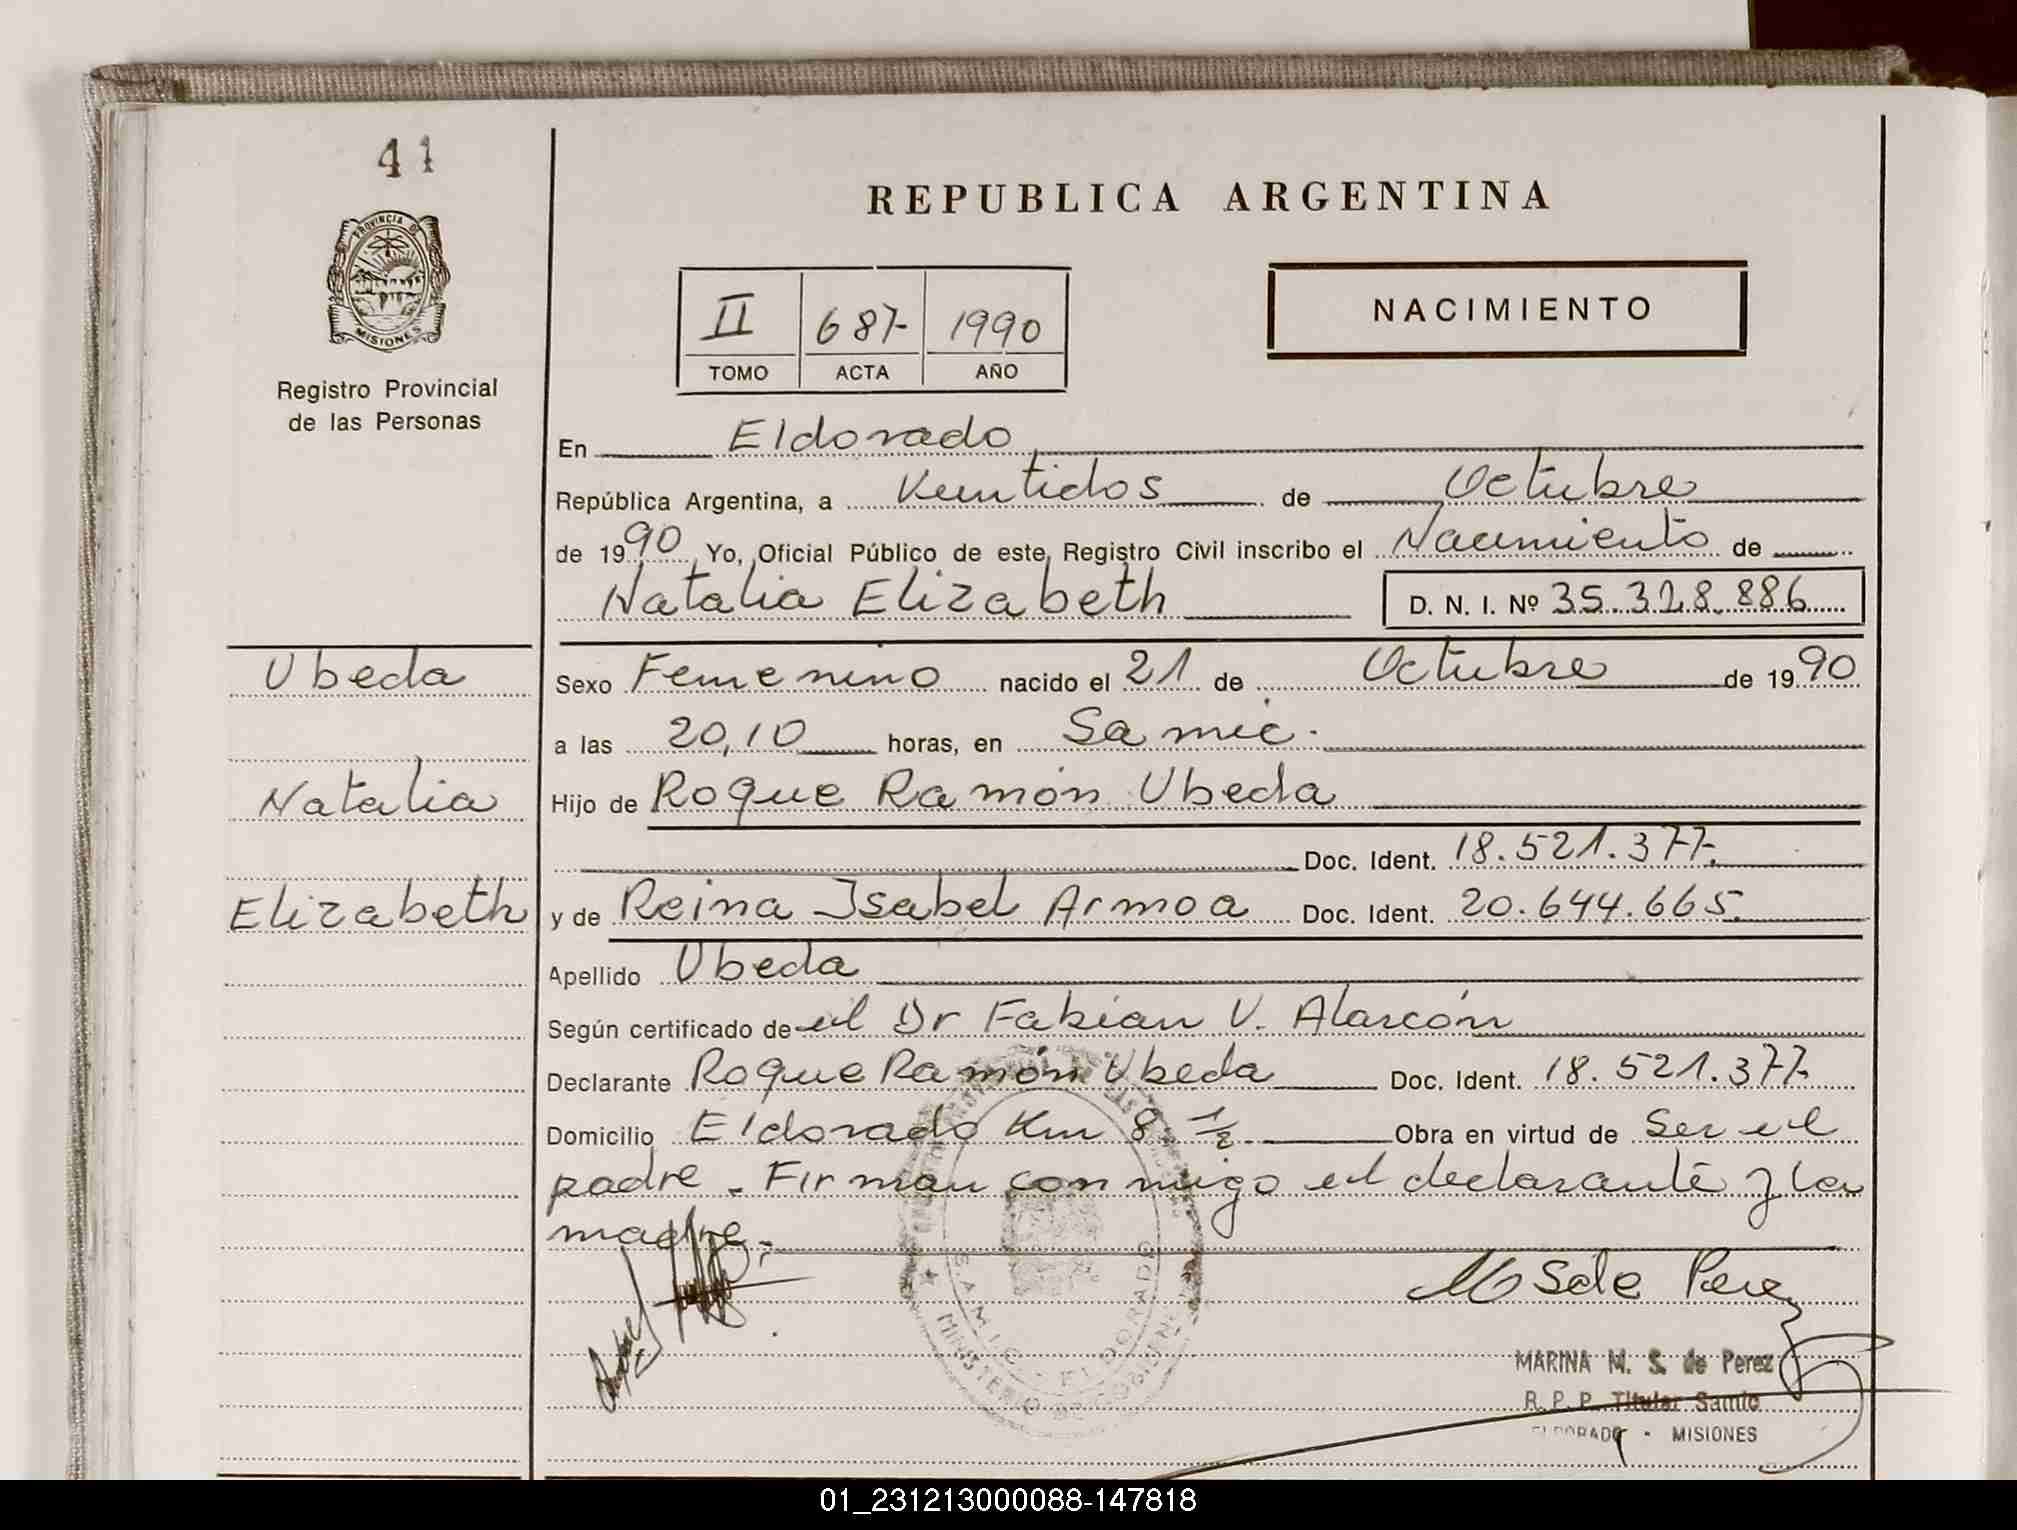 41
REPUBLICA ARGENTINA
PROVINCIA DE
MISIONES
Registro Provincial
de las Personas
II 687- 1990
TOMO ACTA AÑO
NACIMIENTO
En Eldorado
República Argentina, a Veintidos de Octubre
de 1990 Yo, Oficial Público de este Registro Civil inscribo el Nacimiento de
Natalia Elizabeth D. N. I. Nº 35.328.886
Ubeda
Sexo Femenino nacido el 21 de Octubre de 1990
a las 20,10 horas, en Samic.
Natalia
Hijo de Roque Ramón Ubeda
Doc. Ident. 18.521.377.
Elizabeth
y de Reina Isabel Armoa Doc. Ident. 20.644.665.
Apellido Ubeda
Según certificado de el Dr Fabian V. Alarcón
Declarante Roque Ramón Ubeda Doc. Ident. 18.521.377.
Domicilio Eldorado Km 8 1/2 Obra en virtud de Ser el
padre. Firman conmigo el declarante y la
madre.-
M S de Perez
SAMIC - ELDORADO
MINISTERIO DE
MARINA M. S. de Perez
R. P. P. Titular Samic
ELDORADO - MISIONES
01_231213000088-147818